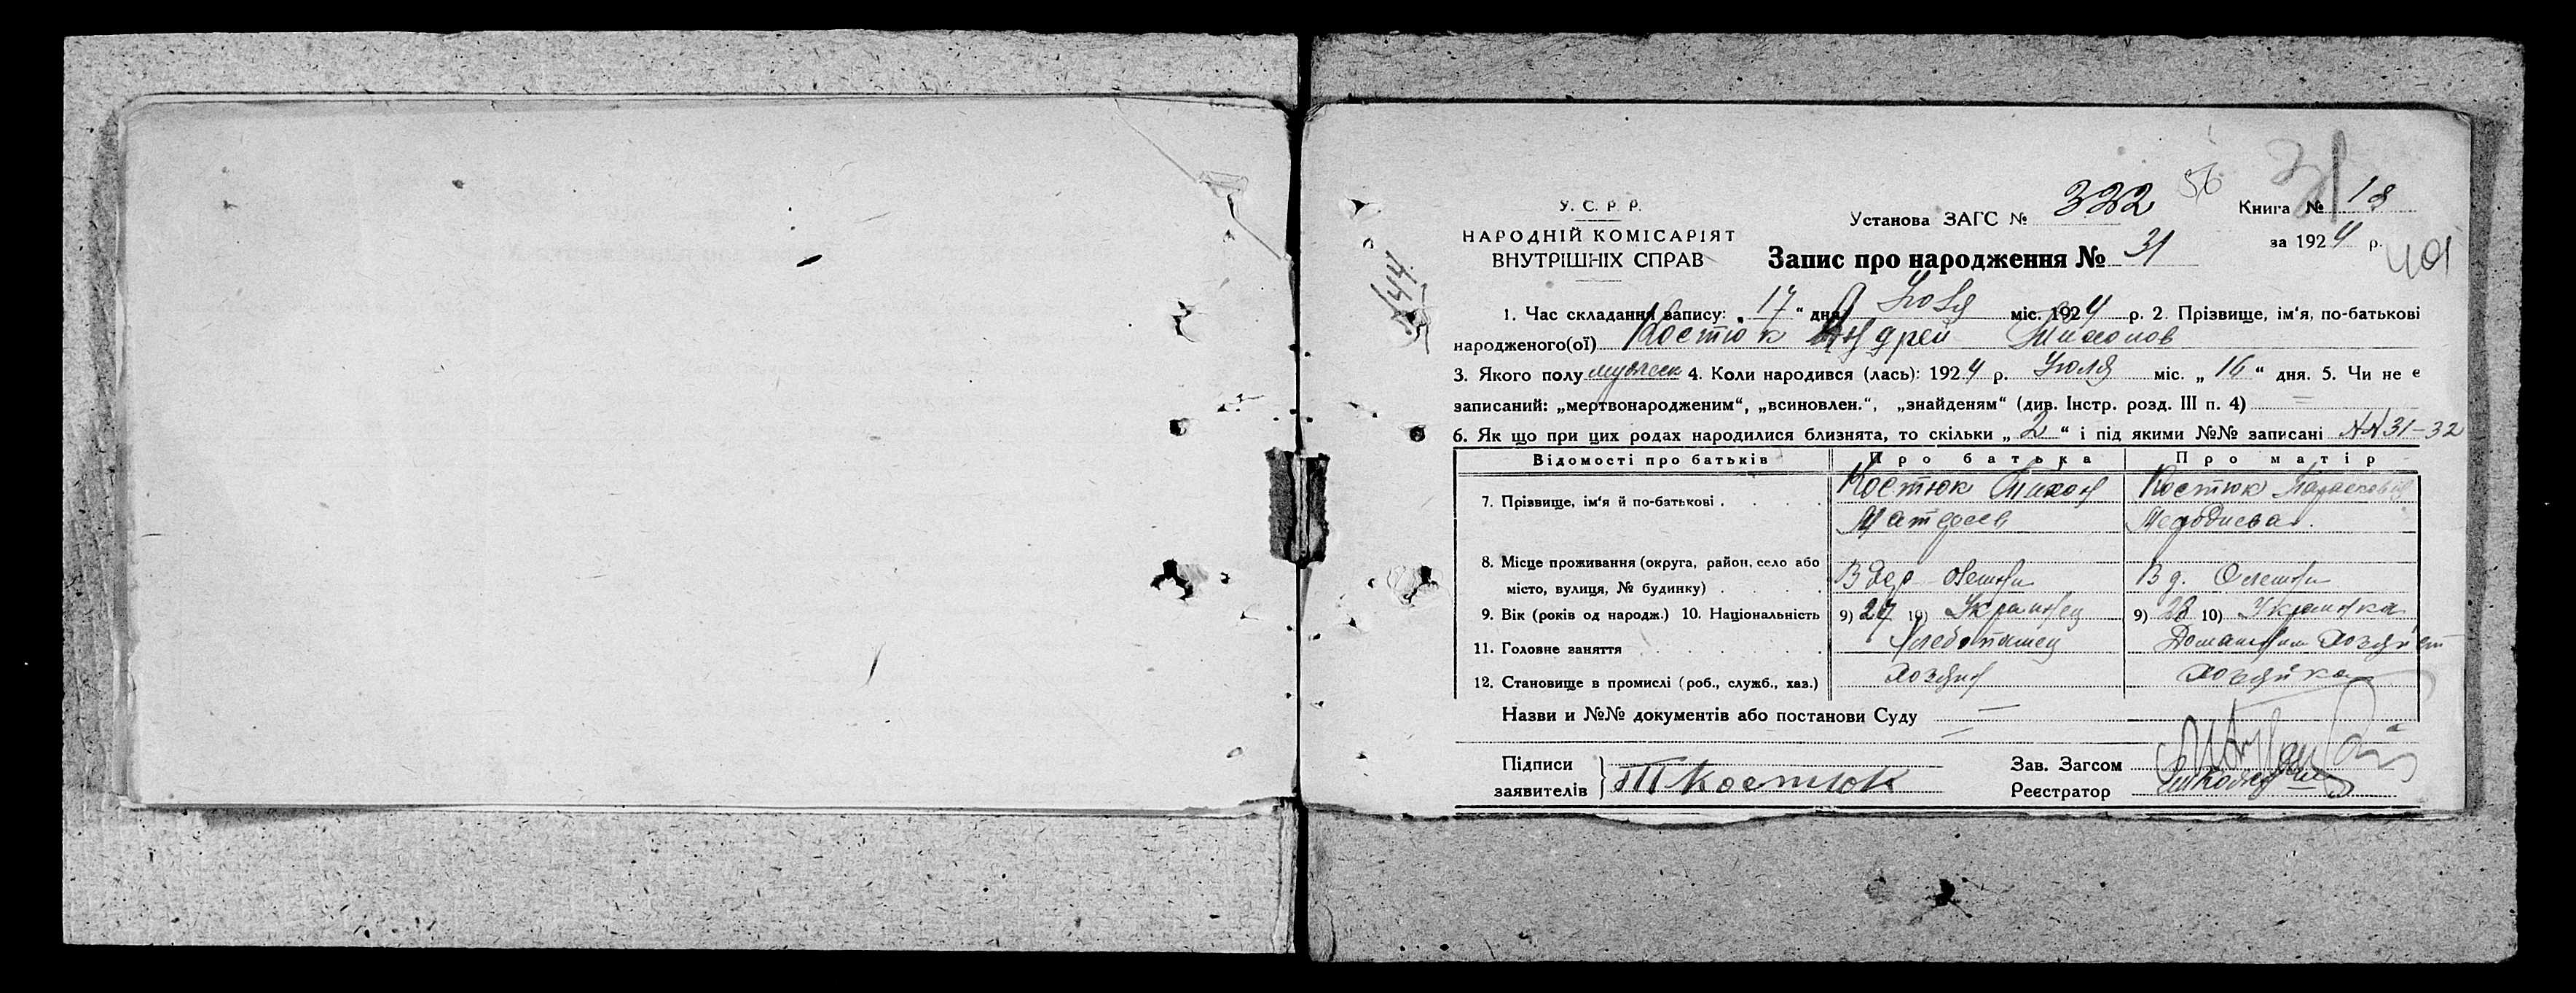 У. С. Р. Р.
НАРОДНІЙ КОМІСАРІЯТ
ВНУТРІШНІХ СПРАВ
144
56
31
401
Установа ЗАГС № 332
Книга № 18
за 1924 р.
Запис про народження № 31
1. Час складання запису: „17“ дня Июля міс. 1924 р. 2. Прізвище, ім'я, по-батькові
народженого(ої) Костюк Андрей Тихонов
3. Якого полу мужеск 4. Коли народився (лась): 1924 р. Июля міс. „16“ дня. 5. Чи не є
записаний: „мертвонародженим“, „всиновлен.“, „знайденям“ (див. Інстр. розд. III п. 4) =
6. Як що при цих родах народилися близнята, то скільки „2“ і під якими №№ записані №№ 31-32
Відомості про батьків Про батька Про матір
7. Прізвище, ім'я й по-батькові . . . . Костюк Тихон Костюк Парасковия
Матфеев Мефодиева.
8. Місце проживання (округа, район, село або
місто, вулиця, № будинку) . . . . В дер В д.
9. Вік (років од народж.) 10. Національність 9) 27 10) Украинец 9) 28 10) Украинка
11. Головне заняття . . . . . . Хлебопашец Домашним хозяйст
12. Становище в промислі (роб., служб., хаз.) хозяин хозяйка
Назви и №№ документів або постанови Суду —
Підписи
заявителів } Т Костюк
Зав. Загсом
Реєстратор